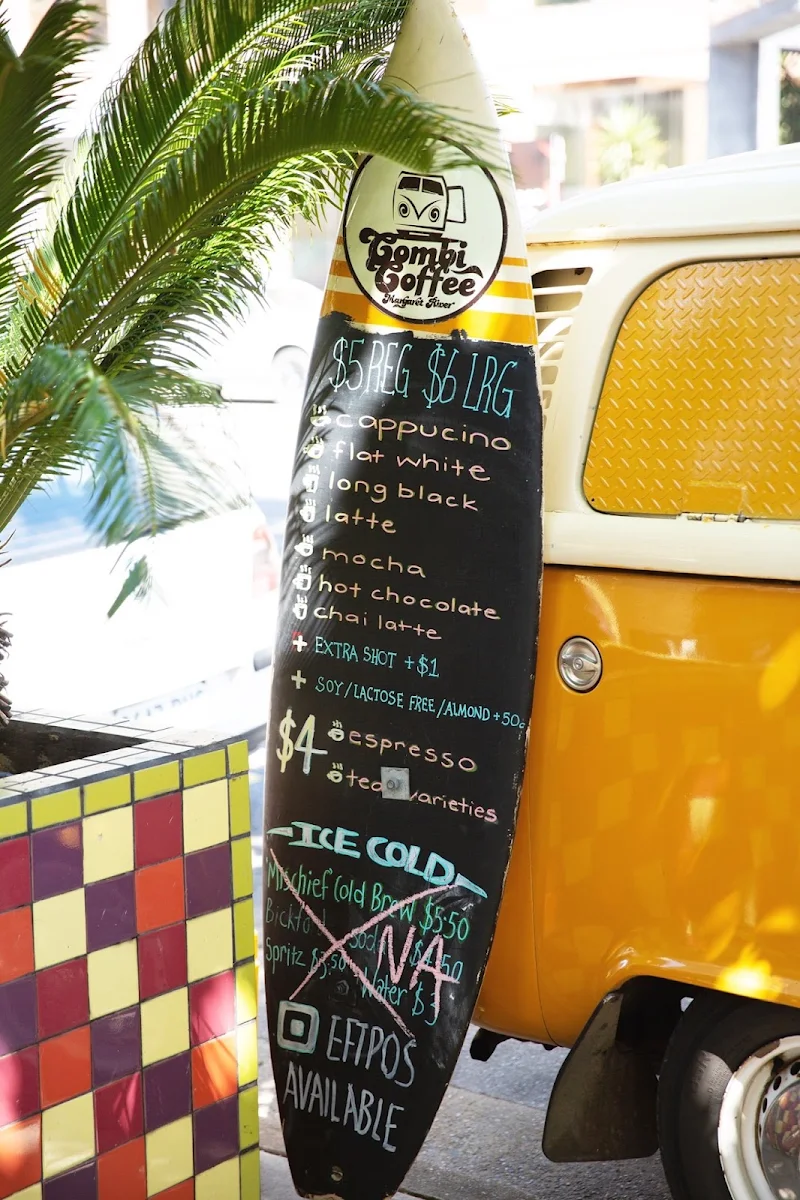 Combi
Coffee
Margaret River
$5 REG $6 LRG
cappucino
flat white
long black
latte
mocha
hot chocolate
chai latte
+ EXTRA SHOT +$1
+ SOY/LACTOSE FREE/ALMOND +50c
$4 espresso
tea varieties
ICE COLD
Mischief Cold Brew $5.50
soda $4.50
NA
Spritz $3.50 Water $3
EFTPOS
AVAILABLE